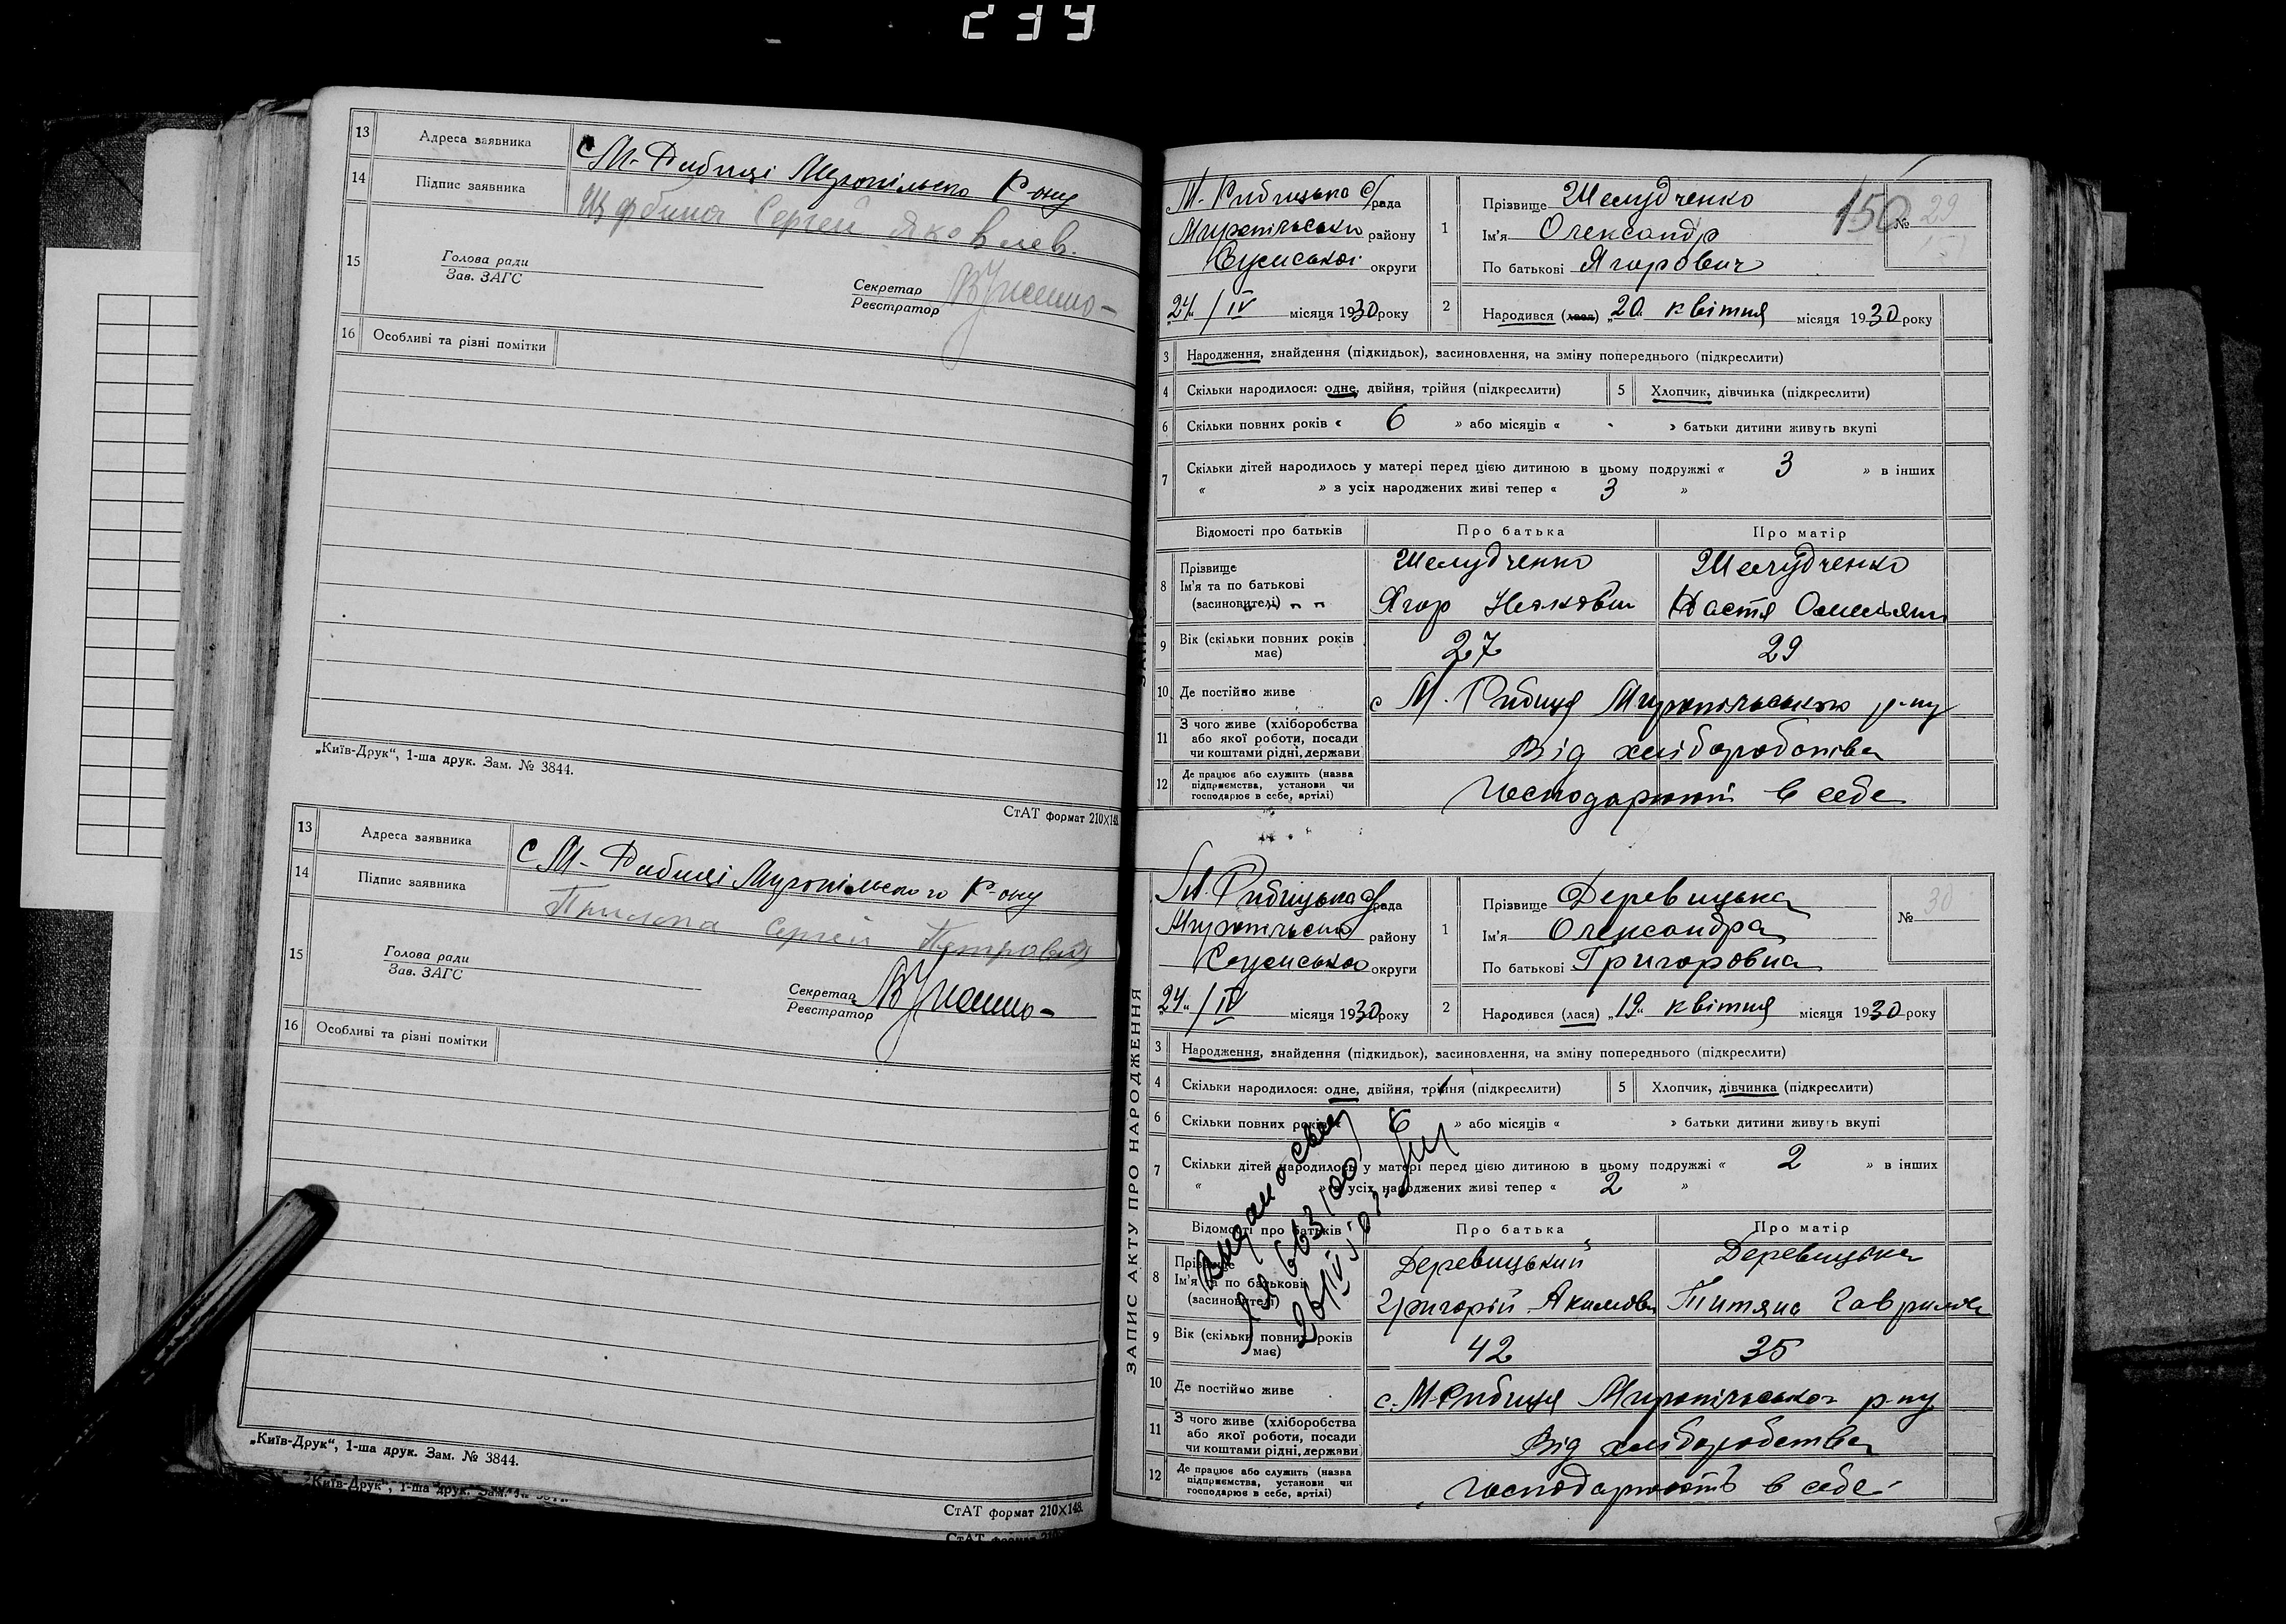 239
13 Адреса заявника с М-Рибиці Муропільсько Р-ону
14 Підпис заявника Щербина Сергей Яковлев.
15 Голова ради
Зав. ЗАГС
Секретар
Реєстратор
16 Особливі та різні помітки
„Київ-Друк“, 1-ша друк. Зам. № 3844.
СтАТ формат 210×148.
13 Адреса заявника с М- Рибиці Муропільсько го Р-ону
14 Підпис заявника Сергей Петрович
15 Голова ради
Зав. ЗАГС
Секретар
Реєстратор
16 Особливі та різні помітки
„Київ-Друк“, 1-ша друк. Зам. № 3844.
СтАТ формат 210×148.
„Київ-Друк“, 1-ша друк. Зам.
СтАТ формат 210
М-Рибицька с/рада
Миропільськ району
Сумської округи
24 / IV місяця 1930 року
1 Прізвище Шелудченко
Ім'я Олександр
По батькові Ягорович
150 № 29
2 Народився (лася) „20 квітня місяця 1930 року
3 Народження, знайдення (підкидьок), засиновлення, на зміну попереднього (підкреслити)
4 Скільки народилося: одне, двійня, трійня (підкреслити) 5 Хлопчик, дівчинка (підкреслити)
6 Скільки повних років « 6 » або місяців « - » батьки дитини живуть вкупі
7 Скільки дітей народилось у матері перед цією дитиною в цьому подружжі « 3 » в інших
« » з усіх народжених живі тепер « 3 »
Відомості про батьків Про батька Про матір
8 Прізвище Шелудченко Шелудченко
Ім'я та по батькові
(засиновителі) Ягор Настя
9 Вік (скільки повних років має) 27 29
10 Де постійно живе с М. Рибиця Миропільського р-ну
11 З чого живе (хліборобства або якої роботи, посади чи коштами рідні, держави Від хліборобства
12 Де працює або служить (назва підприємства, установи чи господарює в себе, артілі) Господарюют в себе
ЗАПИС АКТУ ПРО НАРОДЖЕННЯ
М. Рибицька с/рада
Миропільськ району
Сумської округи
24 / IV місяця 1930 року
1 Прізвище Деревицька
Ім'я Олександра
По батькові Григоровна
№ 30
2 Народився (лася) „19“ квітня місяця 1930 року
3 Народження, знайдення (підкидьок), засиновлення, на зміну попереднього (підкреслити)
4 Скільки народилося: одне, двійня, трійня (підкреслити) 5 Хлопчик, дівчинка (підкреслити)
6 Скільки повних років 6 » або місяців « » батьки дитини живуть вкупі
7 Скільки дітей народилось у матері перед цією дитиною в цьому подружжі « 2 » в інших
« » з усіх народжених живі тепер « 2 »
Відомості про батьків Про батька Про матір
8 Прізвище Деревицький Деревицька
Ім'я та по батькові
(засиновителі) Григорій Якимов Титяна Гаврилов
9 Вік (скільки повних років має) 42 35
10 Де постійно живе с. М-Рибиця Миропільської р-ну
11 З чого живе (хліборобства або якої роботи, посади чи коштами рідні, держави Від хліборобства
12 Де працює або служить (назва підприємства, установи чи господарює в себе, артілі) Господарюють в себе